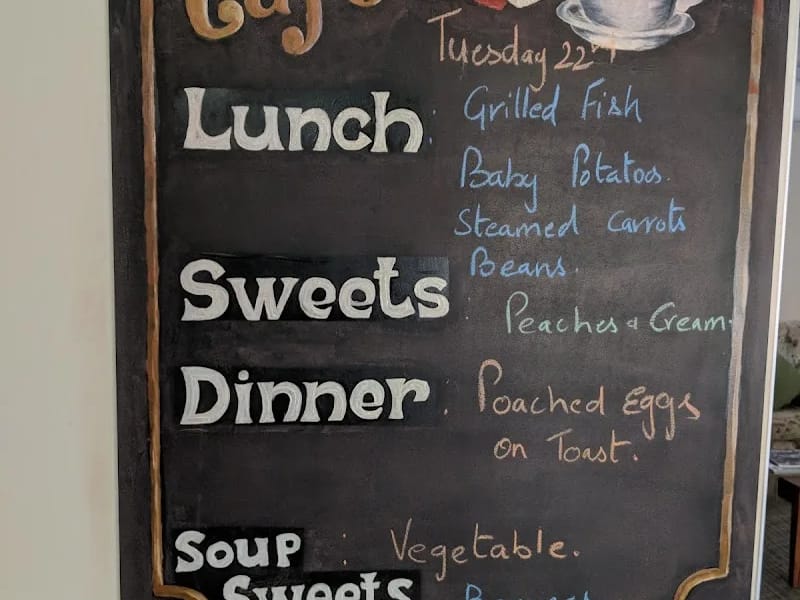 Café
Tuesday 22nd
Lunch : Grilled Fish
Baby Potatoes.
Steamed Carrots
Beans.
Sweets : Peaches & Cream.
Dinner : Poached Eggs
on Toast.
Soup : Vegetable.
Sweets